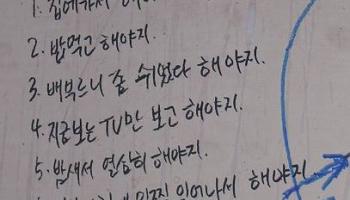 1. 집에가서 해야지.
2. 밥먹고 해야지.
3. 배부르니 좀 쉬었다 해야지.
4. 지금보는 TV만 보고 해야지.
5. 밤새서 열심히 해야지.
일어나서 해야지